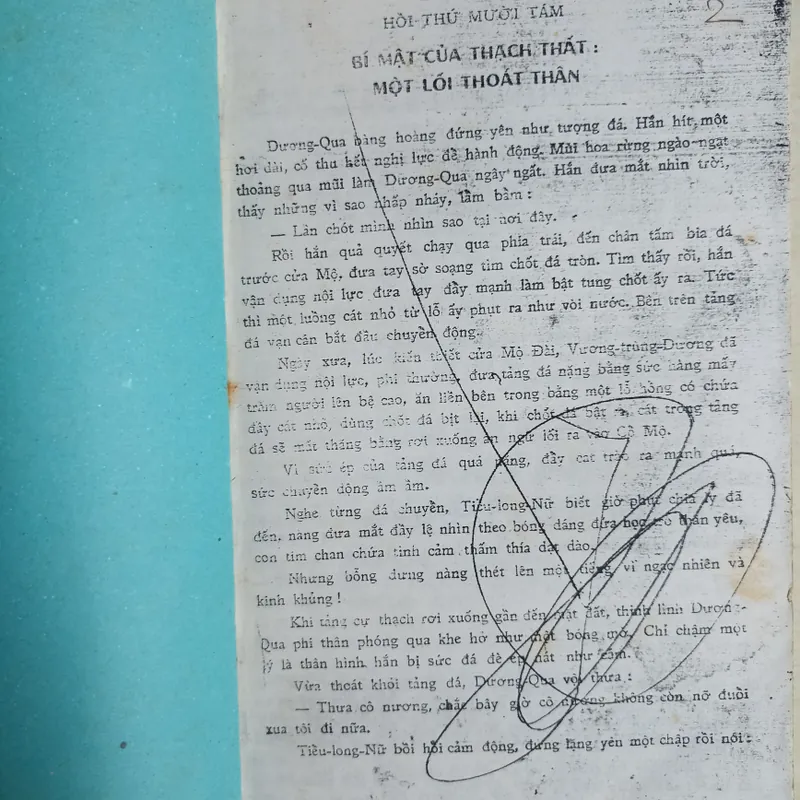 HỒI THỨ MƯỜI TÁM
2
BÍ MẬT CỦA THẠCH THẤT :
MỘT LỐI THOÁT THÂN
Dương-Qua bàng hoàng đứng yên như tượng đá. Hắn hít một
hơi dài, cố thu hết nghị lực để hành động. Mùi hoa rừng ngào-ngạt
thoảng qua mũi làm Dương-Qua ngây ngất. Hắn đưa mắt nhìn trời,
thấy những vì sao nhấp nháy, lầm bầm :
— Lần chót mình nhìn sao tại nơi đây.
Rồi hắn quả quyết chạy qua phía trái, đến chân tấm bia đá
trước cửa Mộ, đưa tay sờ soạng tìm chốt đá tròn. Tìm thấy rồi, hắn
vận dụng nội lực đưa tay đẩy mạnh làm bật tung chốt ấy ra. Tức
thì một luồng cát nhỏ từ lỗ ấy phụt ra như vòi nước. Bên trên tảng
đá vạn cân bắt đầu chuyển động.
Ngày xưa, lúc kiến thiết cửa Mộ Đài, Vương-trùng-Dương đã
vận dụng nội lực, phi thường, đưa tảng đá nặng bằng sức hàng mấy
trăm người lên bệ cao, ăn liền bên trong bằng một lỗ hỏng có chứa
đầy cát nhỏ, dùng chốt đá bịt lại, khi chốt đá bật ra, cát trong tảng
đá sẽ mất thăng bằng rơi xuống án ngữ lối ra vào Cổ Mộ.
Vì sức ép của tảng đá quá nặng, đẩy cát trào ra mạnh quá,
sức chuyển động ầm ầm.
Nghe từng đá chuyển, Tiểu-long-Nữ biết giờ phút chia ly đã
đến, nàng đưa mắt đầy lệ nhìn theo bóng dáng đứa học trò thân yêu,
con tim chan chứa tình cảm thấm thía dạt dào.
Nhưng bỗng dưng nàng thét lên một tiếng vì ngạc nhiên và
kinh khủng !
Khi tảng cự thạch rơi xuống gần đến mặt đất, thình lình Dương-
Qua phi thân phóng qua khe hở như một bóng mờ. Chỉ chậm một
ly là thân hình hắn bị sức đá đè ép nát như cám.
Vừa thoát khỏi tảng đá, Dương-Qua vội thưa :
— Thưa cô nương, chắc bây giờ cô nương không còn nỡ đuổi
xua tôi đi nữa.
Tiểu-long-Nữ bồi hồi cảm động, đứng lặng yên một chập rồi nói :